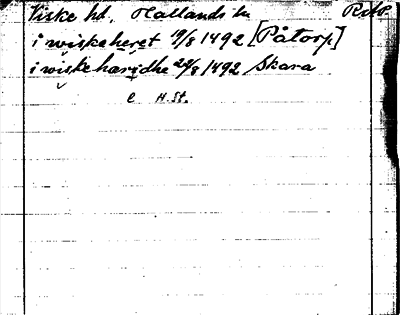 Viske hd. Hallands ln RAP.
i wiskeheret 19/8 1492 [Påtorp]
i wiskehäridhe 24/8 1492 Skara
e H.St.